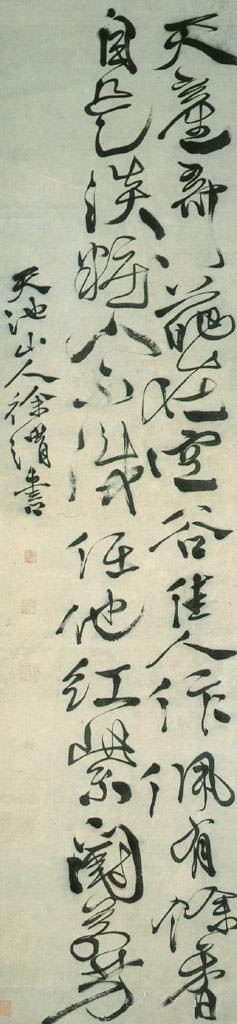 天產奇葩在空谷佳人作佩有餘香
自是淡粧人不識任他紅紫鬪芬芳
天池山人徐渭書